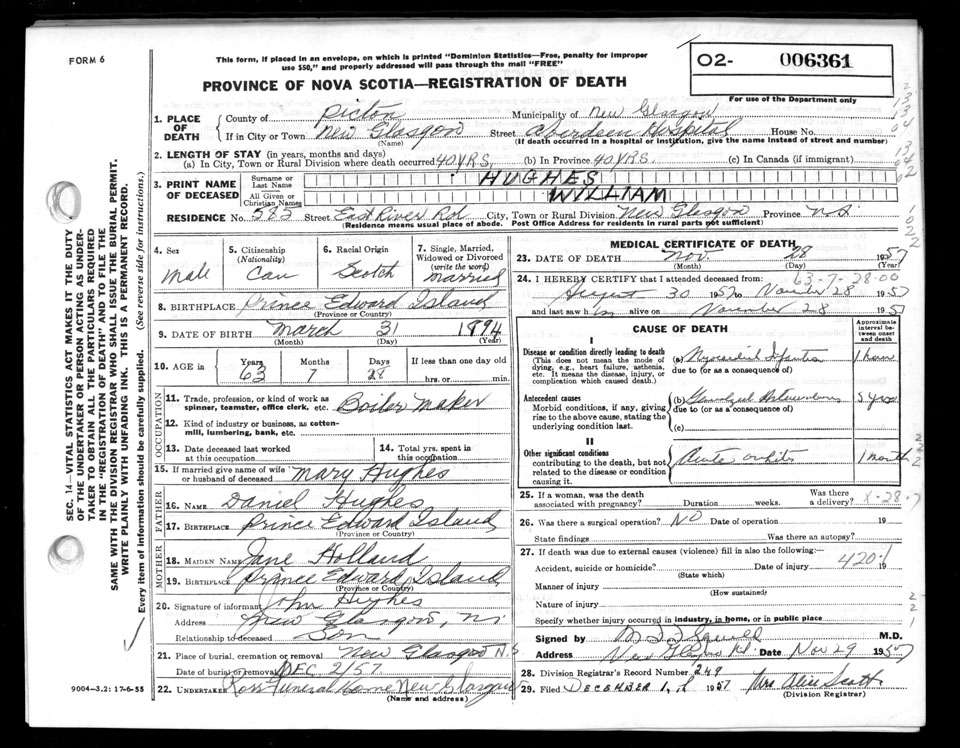 FORM 6
This form, if placed in an envelope, on which is printed "Dominion Statistics—Free, penalty for improper
use $50," and properly addressed will pass through the mail "FREE"
PROVINCE OF NOVA SCOTIA—REGISTRATION OF DEATH
O2- 006361
For use of the Department only
1. PLACE OF DEATH
County of Pictou Municipality of New Glasgow
If in City or Town New Glasgow Street Aberdeen Hospital House No.
(Name) (If death occurred in a hospital or institution, give the name instead of street and number)
2. LENGTH OF STAY (in years, months and days)
(a) In City, Town or Rural Division where death occurred 40 YRS. (b) In Province 40 YRS. (c) In Canada (if immigrant)
3. PRINT NAME OF DECEASED
Surname or Last Name HUGHES
All Given or Christian Names WILLIAM
RESIDENCE No. 582 Street East River Rd City, Town or Rural Division New Glasgow Province N.S.
(Residence means usual place of abode. Post Office Address for residents in rural parts not sufficient)
4. Sex Male
5. Citizenship (Nationality) Can
6. Racial Origin Scotch
7. Single, Married, Widowed or Divorced (write the word) Married
8. BIRTHPLACE Prince Edward Island
(Province or Country)
9. DATE OF BIRTH March 31 1894
(Month) (Day) (Year)
10. AGE in Years 63 Months 7 Days 28 If less than one day old hrs. or min.
OCCUPATION
11. Trade, profession, or kind of work as spinner, teamster, office clerk, etc. Boiler Maker
12. Kind of industry or business, as cotton-mill, lumbering, bank, etc.
13. Date deceased last worked at this occupation
14. Total yrs. spent in this occupation
15. If married give name of wife or husband of deceased Mary Hughes
FATHER
16. NAME Daniel Hughes
17. BIRTHPLACE Prince Edward Island
(Province or Country)
MOTHER
18. MAIDEN NAME Jane Holland
19. BIRTHPLACE Prince Edward Island
(Province or Country)
20. Signature of informant John Hughes
Address New Glasgow, NS
Relationship to deceased Son
21. Place of burial, cremation or removal New Glasgow N.S
Date of burial or removal DEC 2/57
22. UNDERTAKER Ross Funeral Home New Glasgow
(Name and address)
MEDICAL CERTIFICATE OF DEATH
23. DATE OF DEATH Nov. 28 1957
(Month) (Day) (Year)
63-7-28-00
24. I HEREBY CERTIFY that I attended deceased from:
August 30 1957 to November 28 1957
and last saw him alive on November 28 1957
CAUSE OF DEATH
Approximate interval between onset and death
I
Disease or condition directly leading to death
(This does not mean the mode of dying, e.g., heart failure, asthenia, etc. It means the disease, injury, or complication which caused death.)
(a) Myocardial Infarction 1 hour
due to (or as a consequence of)
Antecedent causes
Morbid conditions, if any, giving rise to the above cause, stating the underlying condition last.
(b) Generalized Arteriosclerosis 5 yrs
due to (or as a consequence of)
(c)
II
Other significant conditions
contributing to the death, but not related to the disease or condition causing it.
Acute 1 month
25. If a woman, was the death associated with pregnancy? Duration weeks. Was there a delivery? X-28-7
26. Was there a surgical operation? NO Date of operation 19
State findings Was there an autopsy?
27. If death was due to external causes (violence) fill in also the following:—
Accident, suicide or homicide? Date of injury 19
420.1
(State which)
Manner of injury
(How sustained)
Nature of injury
Specify whether injury occurred in industry, in home, or in public place
Signed by M.D.
Address New Glasgow Date Nov 29 1957
28. Division Registrar's Record Number 249
29. Filed DECEMBER 1957 Mrs Alice Scott
(Division Registrar)
9004-3.2: 17-6-55
SEC. 14—VITAL STATISTICS ACT MAKES IT THE DUTY
OF THE UNDERTAKER OR PERSON ACTING AS UNDER-
TAKER TO OBTAIN ALL THE PARTICULARS REQUIRED
IN THE "REGISTRATION OF DEATH" AND TO FILE THE
SAME WITH THE DIVISION REGISTRAR WHO SHALL ISSUE THE BURIAL PERMIT.
WRITE PLAINLY WITH UNFADING INK. THIS IS A PERMANENT RECORD.
Every item of information should be carefully supplied. (See reverse side for instructions.)